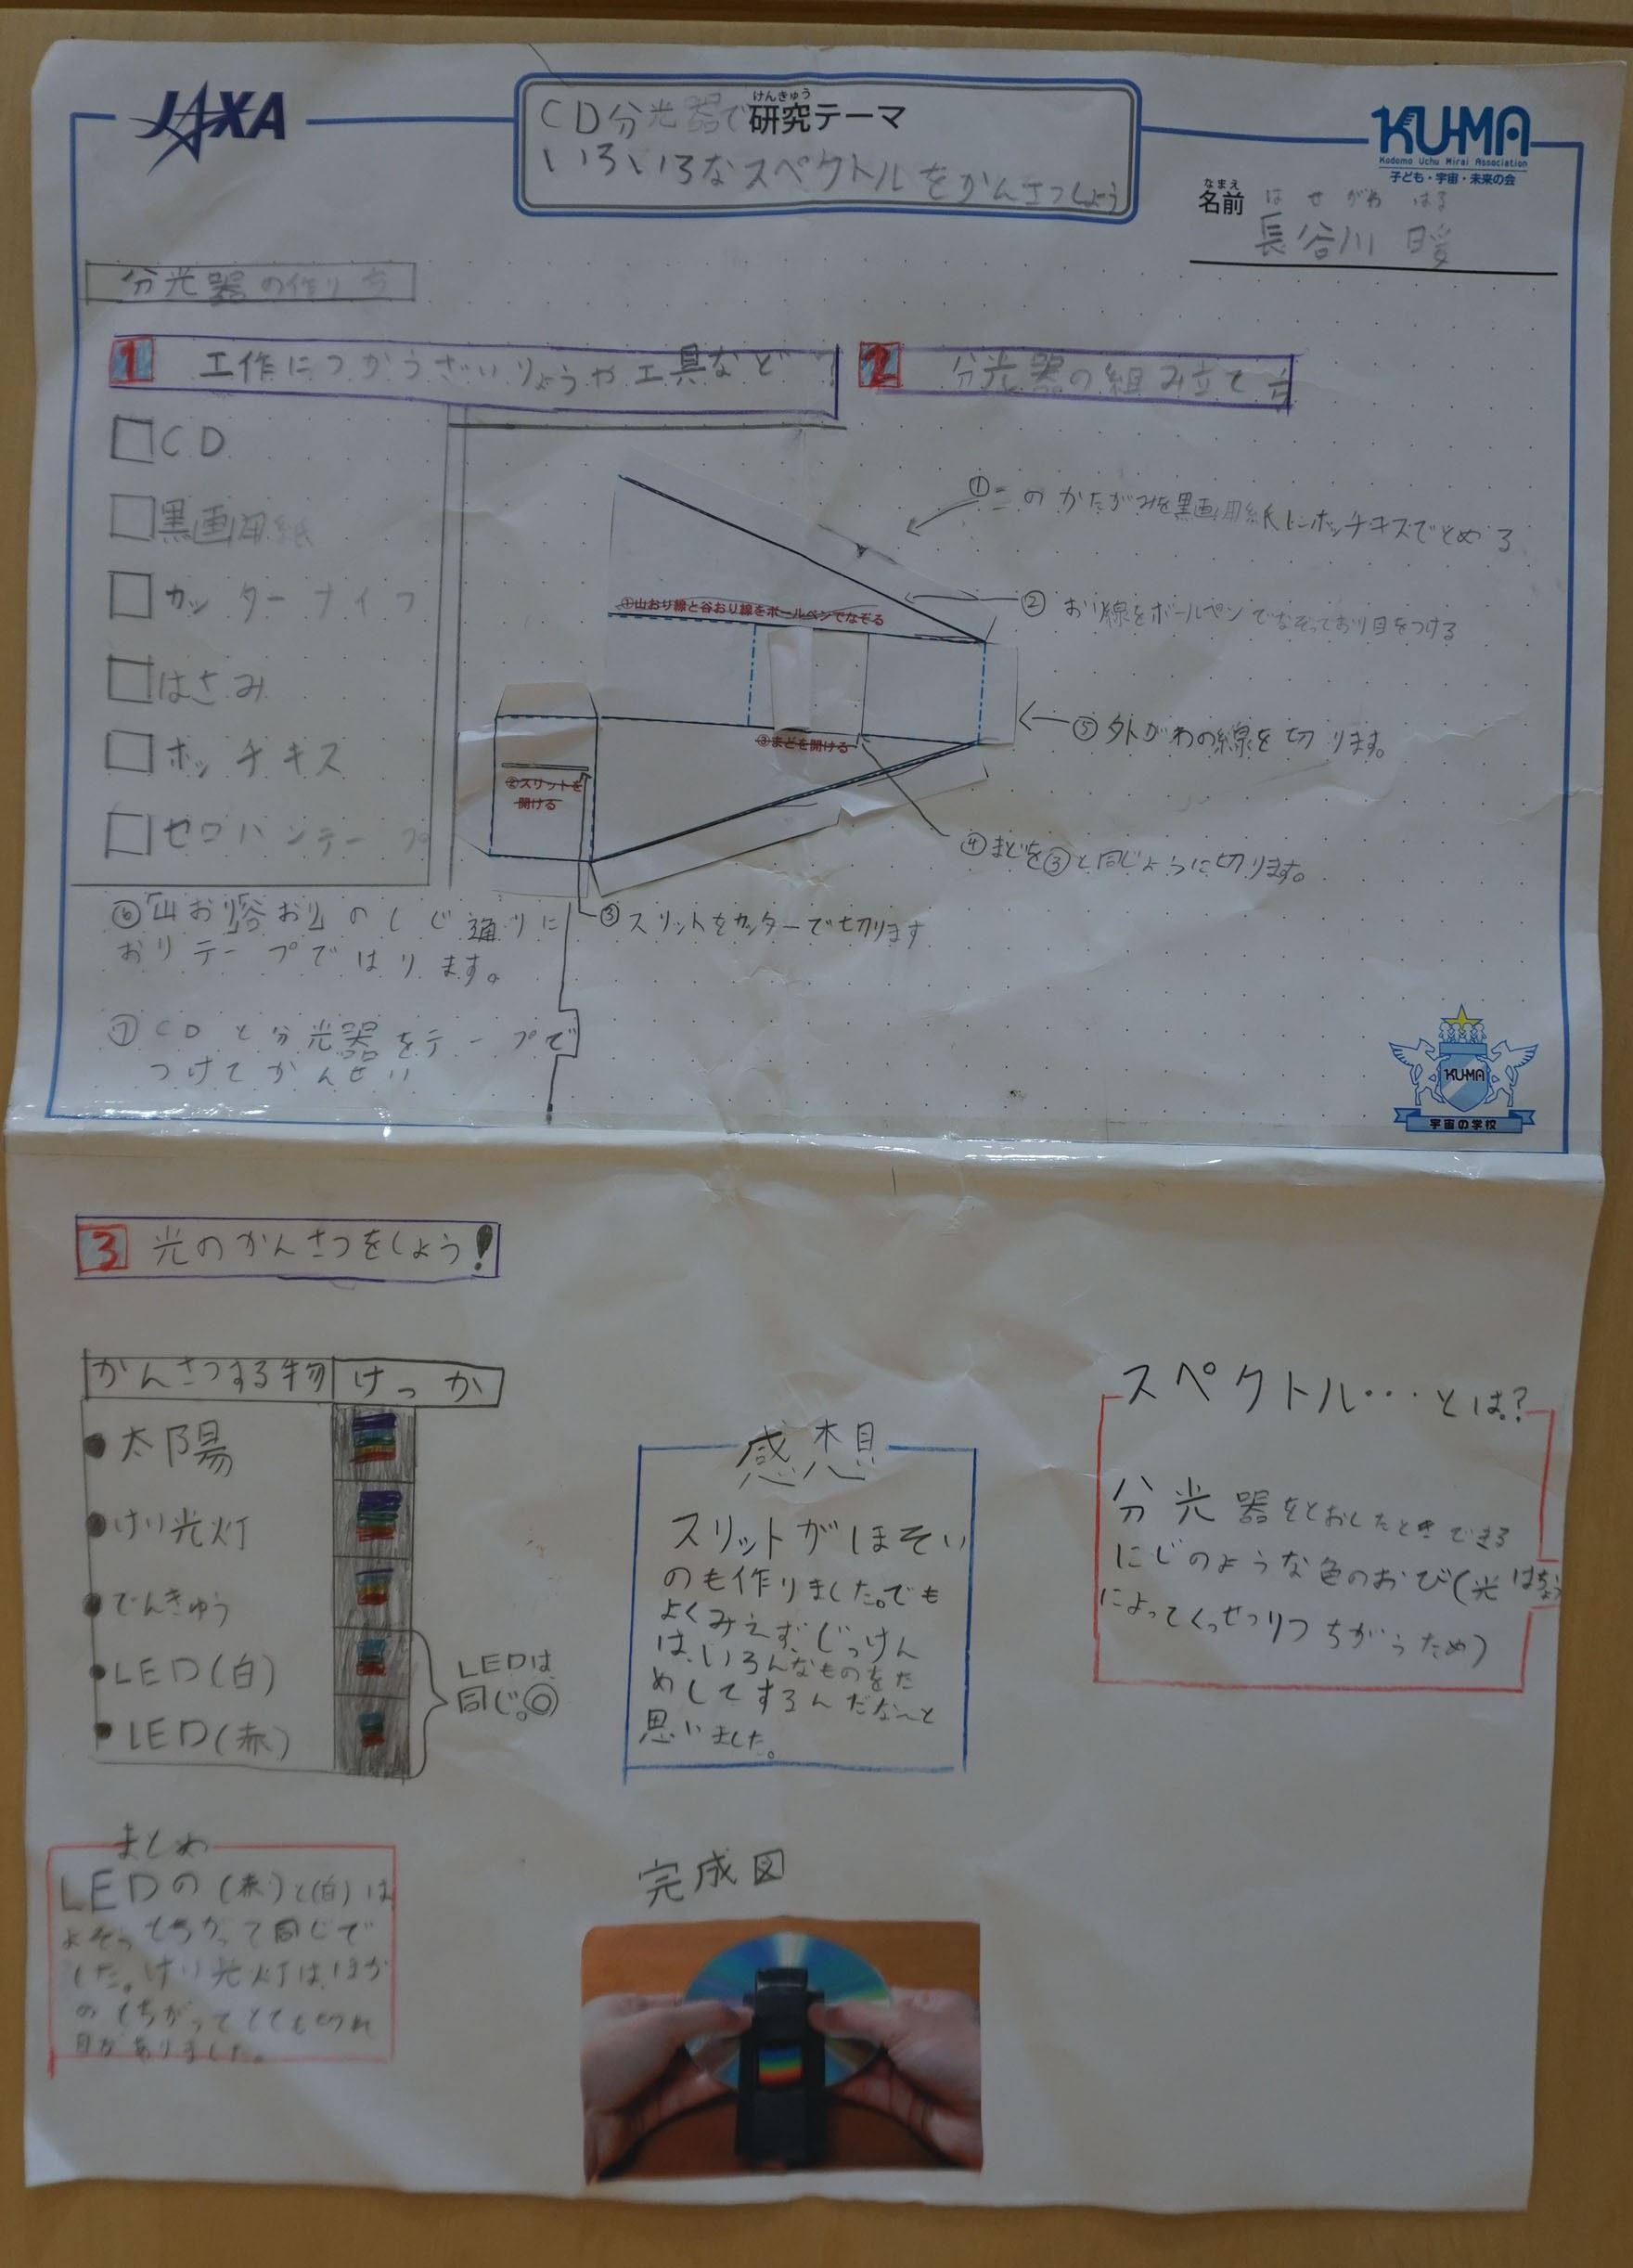 JAXA
けんきゅう
研究テーマ
CD分光器で
いろいろなスペクトルをかんさつしよう
KUMA
Kodomo Uchu Mirai Association
子ども・宇宙・未来の会
なまえ
名前
はせがわ はる
長谷川 暖
分光器の作り方
1 工作につかうざいりょうや工具など!
□CD
□黒画用紙
□カッターナイフ
□はさみ
□ホッチキス
□セロハンテープ
2 分光器の組み立て方
①このかたがみを黒画用紙にホッチキスでとめる
②おり線をボールペンでなぞっており目をつける
①山おり線と谷おり線をボールペンでなぞる
⑤外がわの線を切ります。
③まどを開ける
②スリットを
開ける
④まどを③と同じように切ります。
③スリットをカッターで切ります
⑥「山おり」「谷おり」のしじ通りに
おりテープではります。
⑦CDと分光器をテープで
つけてかんせい
KUMA
宇宙の学校
3 光のかんさつをしよう!
かんさつする物 けっか
●太陽
●けい光灯
●でんきゅう
●LED(白)
●LED(赤)
LEDは
同じ。◎
感想
スリットがほそい
のも作りました。でも
よくみえず、じっけん
は、いろんなものをた
めしてするんだな〜と
思いました。
スペクトル…とは?
分光器をとおしたときできる
にじのような色のおび(光はちょう
によってくっせつりつちがうため)
まとめ
LEDの(赤)と(白)は
よそうとちがって同じで
した。けい光灯は、ほか
のとちがってとても切れ
目がありました。
完成図